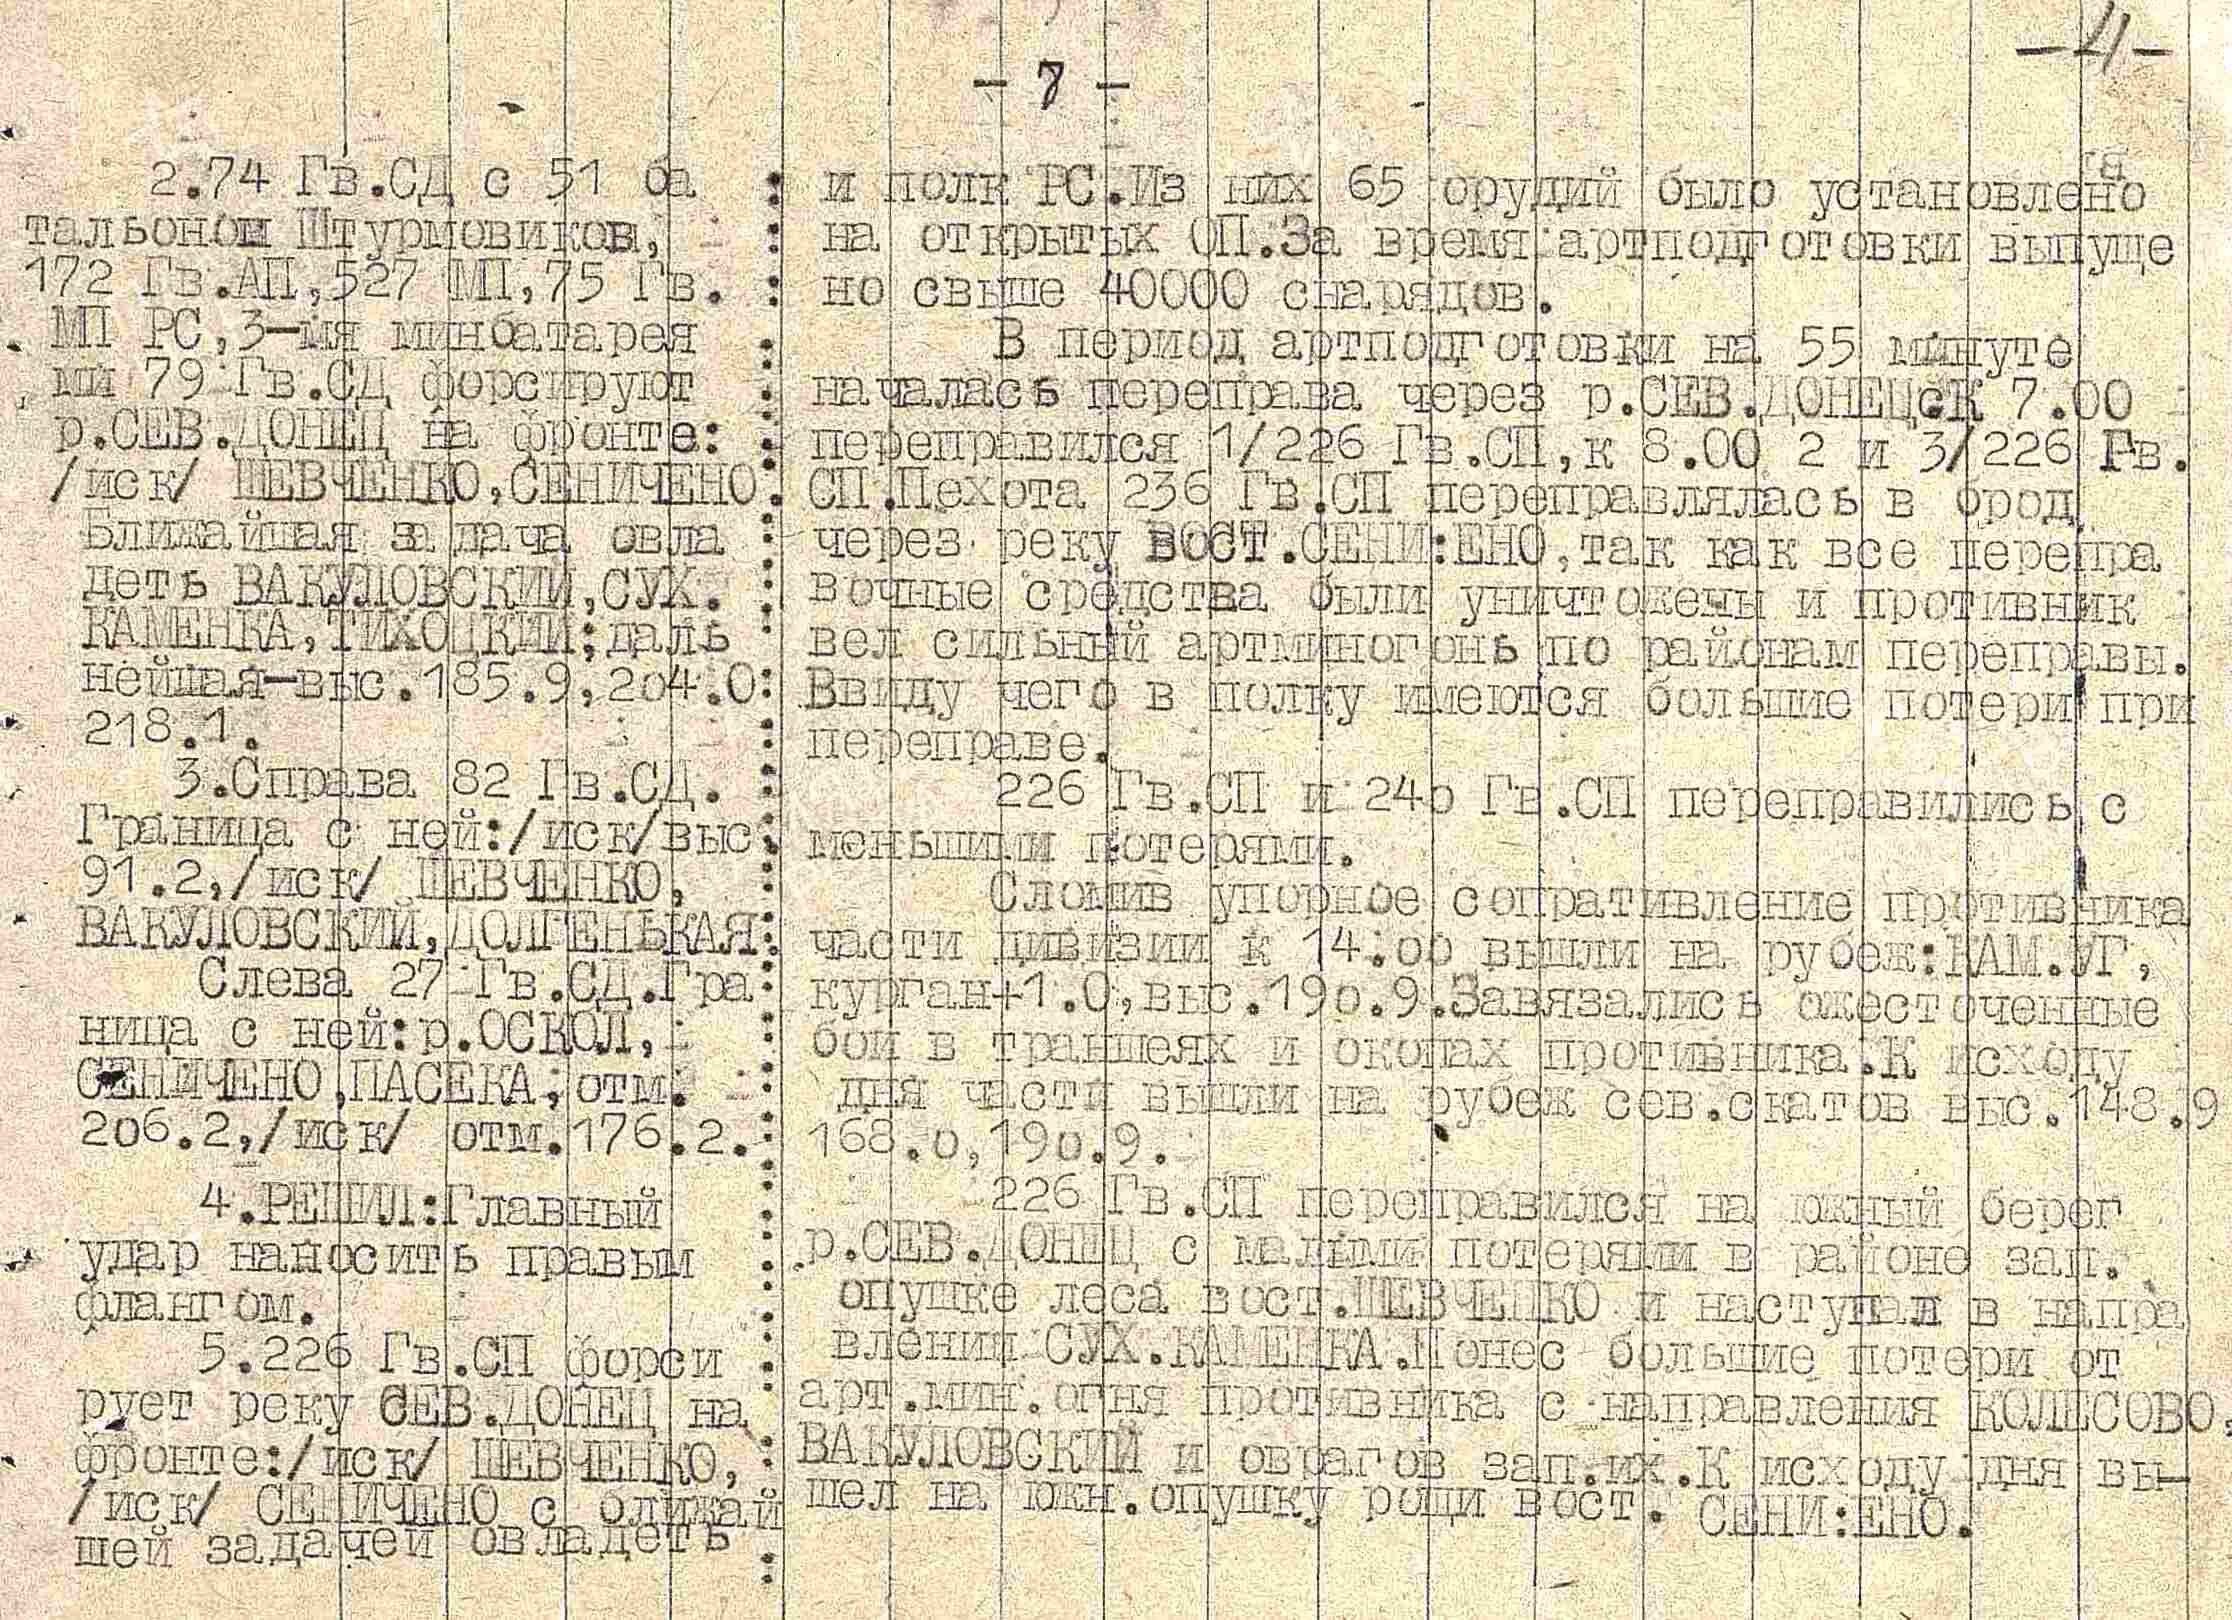 -4-
- 7 -
2.74 Гв.СД с 51 ба
тальоном Штурмовиков,
172 Гв.АП,527 МП,75 Гв.
МП РС,3-мя минбатарея
ми 79 Гв.СД форсируют
р.СЕВ.ДОНЕЦ на фронте:
/иск/ ШЕВЧЕНКО,СЕНИЧЕНО.
Ближайшая задача овла
деть ВАКУЛОВСКИЙ,СУХ.
КАМЕНКА,ТИХОЦКИЙ;даль
нейшая-выс.185.9,2о4.0
218.1.
3.Справа 82 Гв.СД.
Граница с ней:/иск/выс
91.2,/иск/ ШЕВЧЕНКО,
ВАКУЛОВСКИЙ,ДОЛГЕНЬКАЯ.
Слева 27 Гв.СД.Гра
ница с ней:р.ОСКОЛ,
СЕНИЧЕНО,ПАСЕКА,отм.
2о6.2,/иск/ отм.176.2.
4.РЕШИЛ:Главный
удар наносить правым
флангом.
5.226 Гв.СП форси
рует реку СЕВ.ДОНЕЦ на
фронте:/иск/ ШЕВЧЕНКО,
/иск/ СЕНИЧЕНО с ближай
шей задачей овладеть
и полк РС.Из них 65 орудий было установлено
на открытых ОП.За время артподготовки выпуще
но свыше 40000 снарядов.
В период артподготовки на 55 минуте
началась переправа через р.СЕВ.ДОНЕЦсК 7.00
переправился 1/226 Гв.СП,к 8.00 2 и 3/226 Гв.
СП.Пехота 236 Гв.СП переправлялась в брод
через реку вост.СЕНИ:ЕНО,так как все перепра
вочные средства были уничтожены и противник
вел сильный артминогонь по районам переправы.
Ввиду чего в полку имеются большие потери при
переправе.
226 Гв.СП и 24о Гв.СП переправились с
меньшими потерями.
Сломив упорное сопративление противника
части дивизии к 14.оо вышли на рубеж:КАМ.УГ,
курган+1.0,выс.19о.9.Завязались ожесточенные
бои в траншеях и окопах противника.К исходу
дня части вышли на рубеж сев.скатов выс.148.9
168.о,19о.9.
226 Гв.СП переправился на южный берег
р.СЕВ.ДОНЕЦ с малыми потерями в районе зап.
опушке леса вост.ШЕВЧЕНКО и наступал в напра
влении СУХ.КАМЕНКА.Понес большие потери от
арт.мин.огня противника с направления КОЛЕСОВО,
ВАКУЛОВСКИЙ и оврагов зап.их.К исходу дня вы-
шел на южн.опушку рощи вост. СЕНИ:ЕНО.